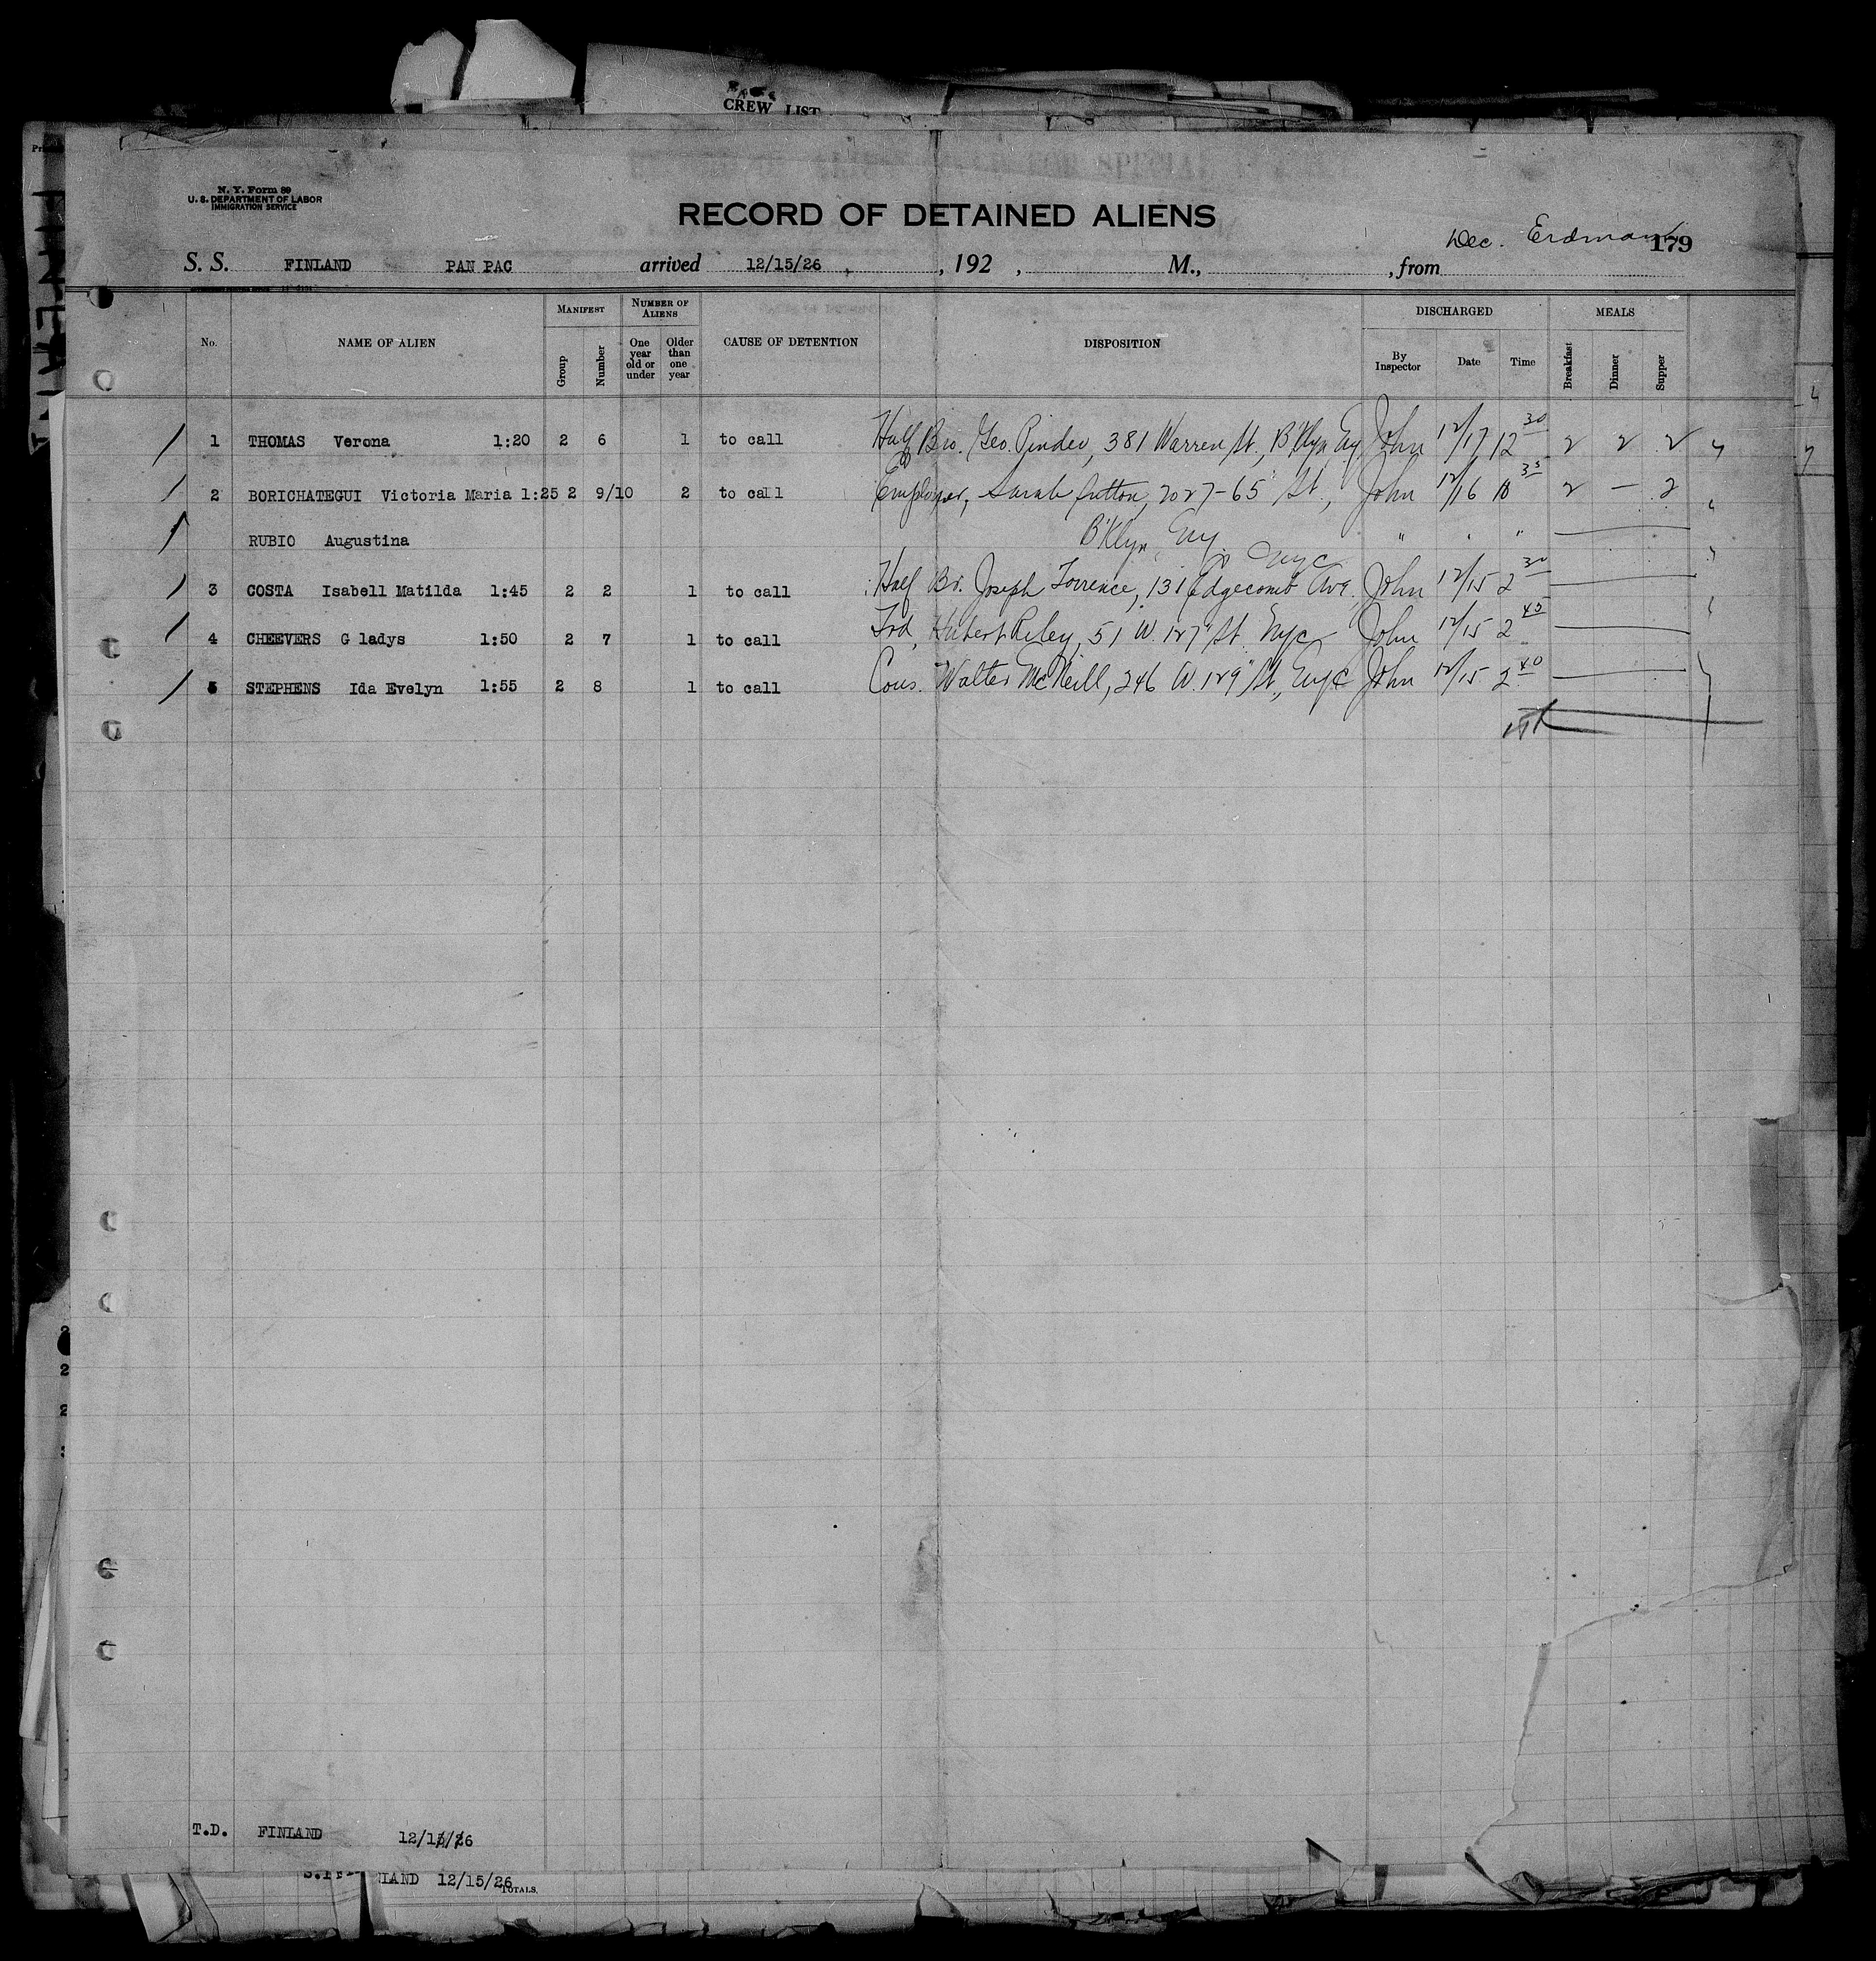 CREW LIST
N. Y. Form 89
U. S. DEPARTMENT OF LABOR
IMMIGRATION SERVICE
RECORD OF DETAINED ALIENS
Dec. Erdman 179
S. S. FINLAND PAN PAC arrived 12/15/26 , , 192 , M., , from
No. NAME OF ALIEN MANIFEST Group Number NUMBER OF ALIENS One year old or under Older than one year CAUSE OF DETENTION DISPOSITION DISCHARGED By Inspector Date Time MEALS Breakfast Dinner Supper
1 THOMAS Verona 1:20 2 6 1 to call Half Bro. Geo. Pinder, 381 Warren St., B'klyn John 12/17 12 30 2 2 2
2 BORICHATEGUI Victoria Maria 1:25 2 9/10 2 to call Employer, Sarah Sutton, 2027-65" St., John 12/16 10 35 2 — 2
RUBIO Augustina B'klyn, " " "
NYC
3 COSTA Isabell Matilda 1:45 2 2 1 to call Half Br. Joseph Torrence, 131 Edgecomb Ave, John 12/15 2 30
4 CHEEVERS G ladys 1:50 2 7 1 to call Frd, Hubert Riley, 51 W. 127" St. NYC John 12/15 2 45
5 STEPHENS Ida Evelyn 1:55 2 8 1 to call Cous. Walter McNeill, 246 W. 129" St., John 12/15 2 40
T.D. FINLAND 12/15/26
NLAND 12/15/26
TOTALS.